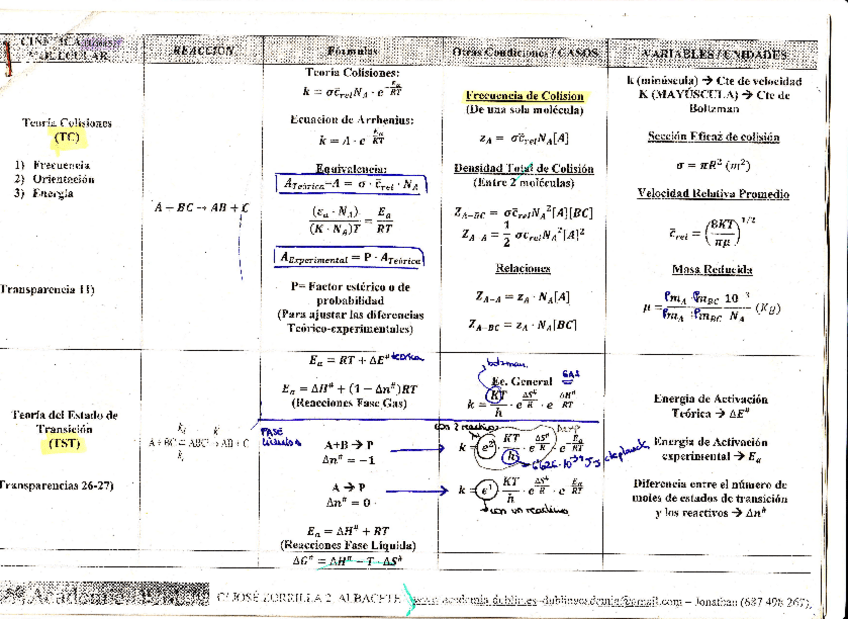 CINÉTICA
MOLECULAR
REACCION
Fórmulas
Otras Condiciones / CASOS
VARIABLES / UNIDADES
Teoría Colisiones
(TC)
1) Frecuencia
2) Orientación
3) Energía
Transparencia 11)
A − BC → AB + C
Teoría Colisiones:
k = σc̄_rel N_A · e^(−Ea/RT)
Ecuación de Arrhenius:
k = A · e^(−Ea/RT)
Equivalencia:
A_Teórica−A = σ · c̄_rel · N_A
(ε_a · N_A) / (K · N_A)T = E_a / RT
A_Experimental = P · A_Teórica
P= Factor estérico o de
probabilidad
(Para ajustar las diferencias
Teórico-experimentales)
Frecuencia de Colision
(De una sola molécula)
z_A = σc̄_rel N_A[A]
Densidad Total de Colisión
(Entre 2 moléculas)
Z_A−BC = σc̄_rel N_A²[A][BC]
Z_A−A = 1/2 σc_rel N_A²[A]²
Relaciones
Z_A−A = z_A · N_A[A]
Z_A−BC = z_A · N_A[BC]
k (minúscula) → Cte de velocidad
K (MAYÚSCULA) → Cte de
Boltzman
Sección Eficaz de colisión
σ = πR² (m²)
Velocidad Relativa Promedio
c̄_rel = (8KT / πμ)^1/2
Masa Reducida
μ = (Pm_A · Pm_BC / Pm_A · Pm_BC) 10⁻³ / N_A (Kg)
Teoría del Estado de
Transición
(TST)
Transparencias 26-27)
A + BC ⇌ ABC → AB + C
E_a = RT + ΔE^# teórica
E_a = ΔH^# + (1 − Δn^#)RT
(Reacciones Fase Gas)
FASE
A+B → P
Δn^# = −1
A → P
Δn^# = 0
E_a = ΔH^# + RT
(Reacciones Fase Líquida)
ΔG^# = ΔH^# − T · ΔS^#
boltzman
Ec. General
GAS
k = KT/h · e^(ΔS^#/R) · e^(−ΔH^#/RT)
con 2 reactivos
k = e² · KT/h · e^(ΔS^#/R) · e^(−Ea/RT)
6'626·10⁻³⁴ J·s cte planck
k = e¹ · KT/h · e^(ΔS^#/R) · e^(−Ea/RT)
con un reactivo
Energia de Activación
Teórica → ΔE^#
Energia de Activación
experimental → E_a
Diferencia entre el número de
moles de estados de transición
y los reactivos → Δn^#
C/ JOSÉ ZORRILLA 2. ALBACETE www.academia-dublin.es-dublinacademia@gmail.com – Jonathan (687 498 267)